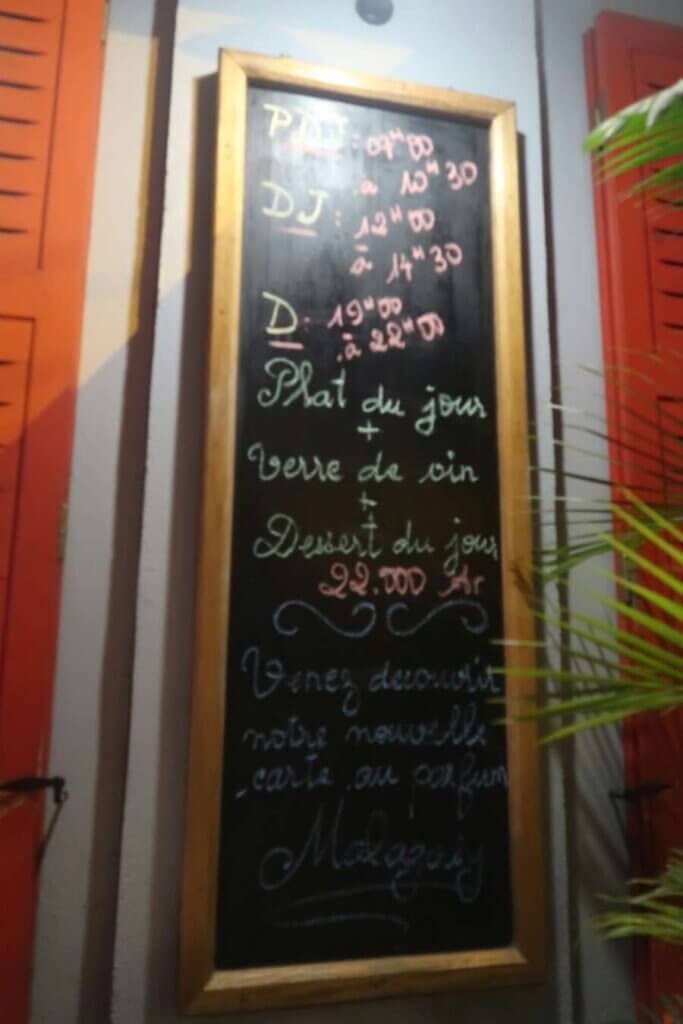 PDJ : 07H00
à 10H30
DJ : 12H00
à 14H30
D : 19H00
à 22H00
Plat du jour
+
Verre de vin
+
Dessert du jour
22.000 Ar
Venez découvrir
notre nouvelle
carte au parfum
Malagasy